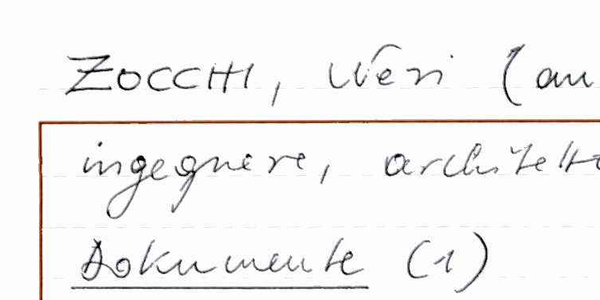 ZOCCHI, Neri (au
ingegnere, architetto
Dokumente (1)